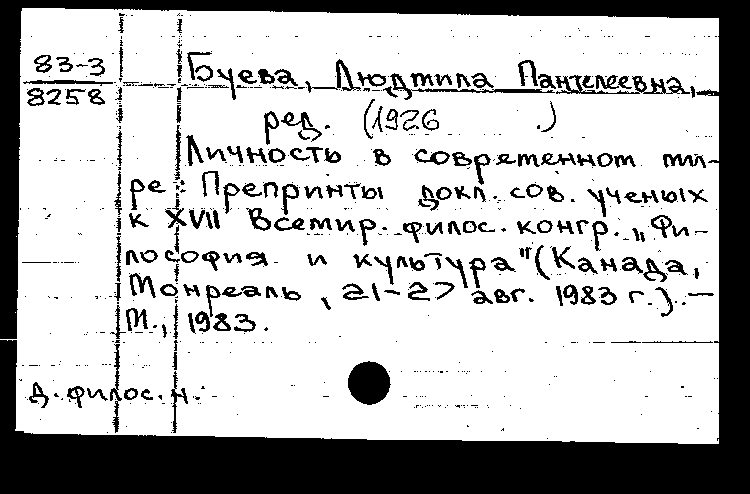 83-3
8258
Буева, Людмила Пантелеевна,
ред. (1926 )
Личность в современном ми-
ре : Препринты докл. сов. ученых
к XVII Всемир. филос. конгр. „Фи-
лософия и культура" (Канада,
Монреаль, 21-27 авг. 1983 г.). —
М., 1983.
д. филос. н.